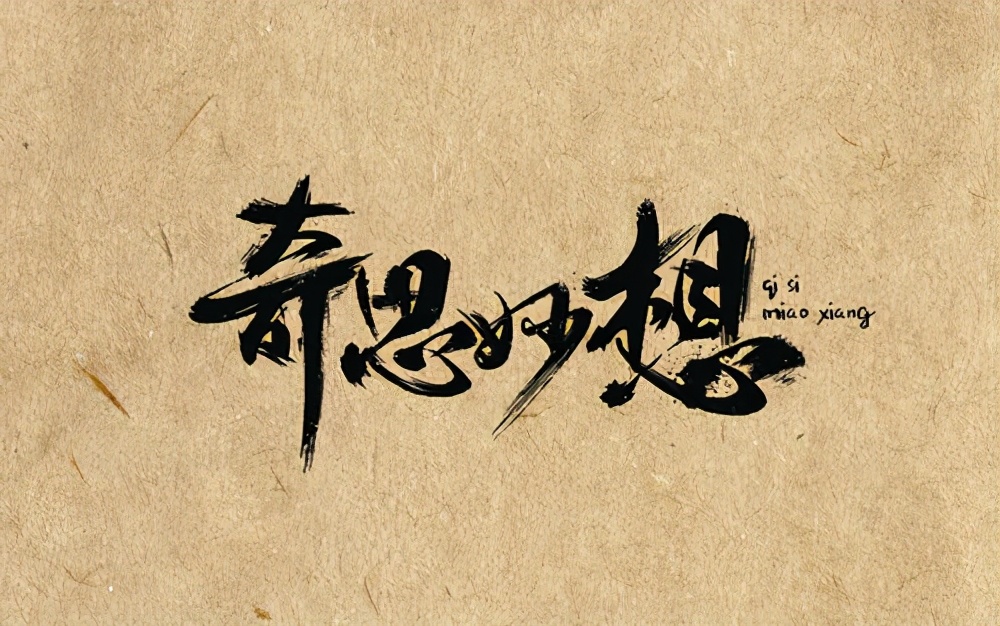 奇思妙想
qi si
miao xiang